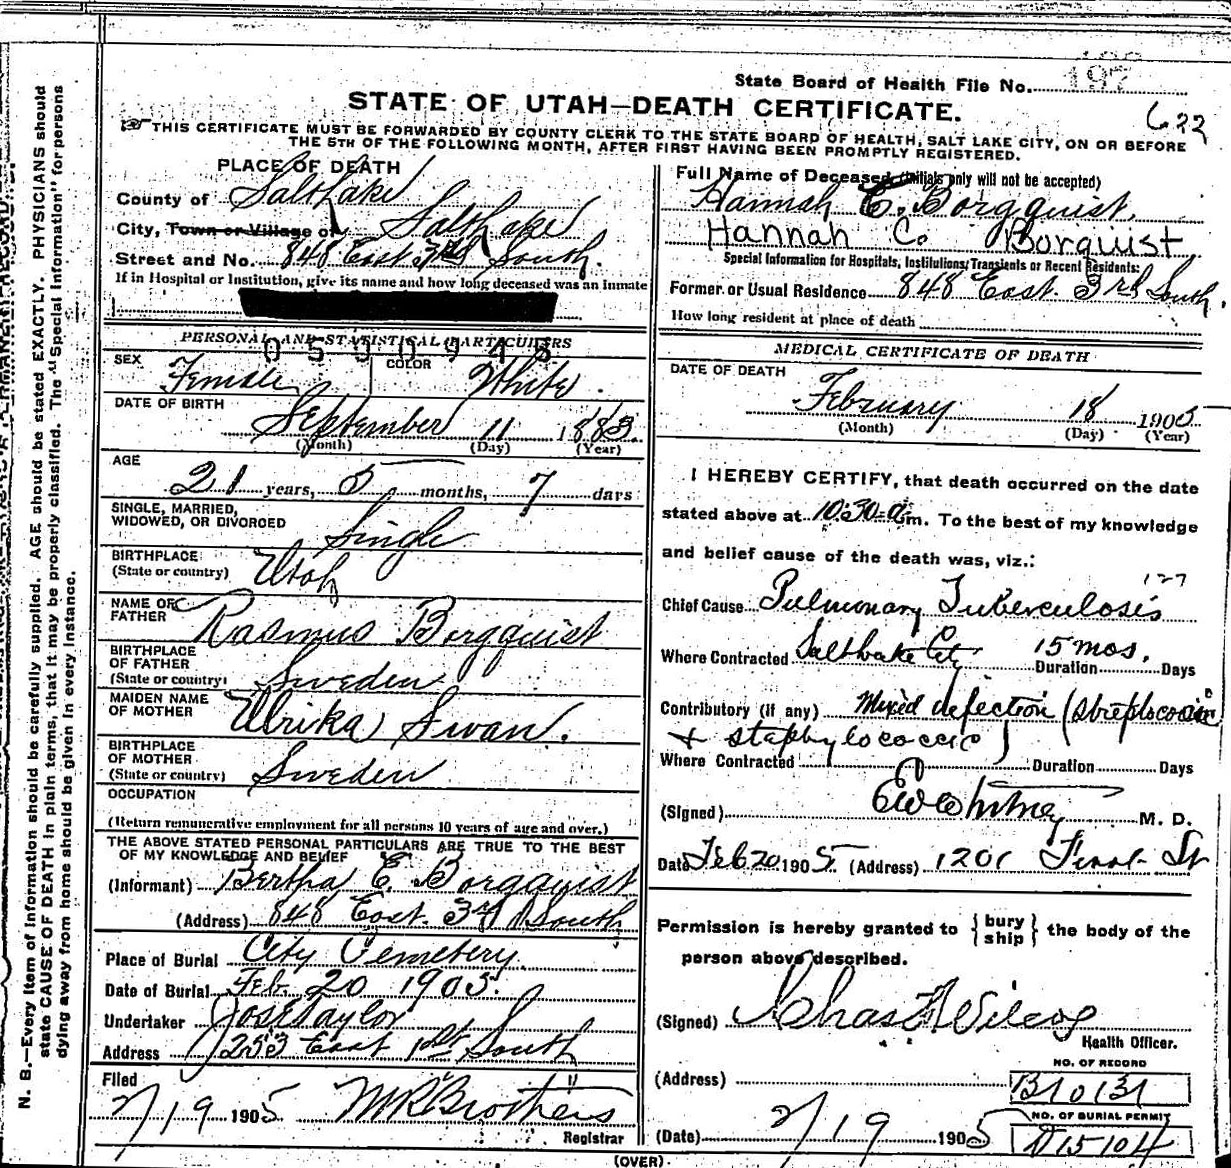 State Board of Health File No. 197
STATE OF UTAH—DEATH CERTIFICATE.
622
THIS CERTIFICATE MUST BE FORWARDED BY COUNTY CLERK TO THE STATE BOARD OF HEALTH, SALT LAKE CITY, ON OR BEFORE
THE 5TH OF THE FOLLOWING MONTH, AFTER FIRST HAVING BEEN PROMPTLY REGISTERED.
PLACE OF DEATH
County of Salt Lake
City, Town or Village of Salt Lake
Street and No. 848 East 3rd South.
If in Hospital or Institution, give its name and how long deceased was an inmate
PERSONAL AND STATISTICAL PARTICULARS
SEX Female COLOR White
DATE OF BIRTH
September 11 1883.
(Month) (Day) (Year)
AGE
21 years, 5 months, 7 days
SINGLE, MARRIED,
WIDOWED, OR DIVORCED Single
BIRTHPLACE
(State or country) Utah
NAME OF
FATHER Rasmus Borgquist
BIRTHPLACE
OF FATHER
(State or country) Sweden
MAIDEN NAME
OF MOTHER Ulrika Swan.
BIRTHPLACE
OF MOTHER
(State or country) Sweden
OCCUPATION
(Return remunerative employment for all persons 10 years of age and over.)
THE ABOVE STATED PERSONAL PARTICULARS ARE TRUE TO THE BEST
OF MY KNOWLEDGE AND BELIEF
(Informant) Bertha E. Borgquist
(Address) 848 East. 3rd South
Place of Burial City Cemetery.
Date of Burial Feb. 20 1905.
Undertaker Jos E Taylor
Address 253 East 1st South
Filed
2/19 1905 M R Brothers
Registrar
Full Name of Deceased (Initials only will not be accepted)
Hannah C. Borgquist.
Hannah C. Borquist
Special Information for Hospitals, Institutions, Transients or Recent Residents:
Former or Usual Residence 848 East. 3rd South.
How long resident at place of death
MEDICAL CERTIFICATE OF DEATH
DATE OF DEATH
February 18 1905
(Month) (Day) (Year)
I HEREBY CERTIFY, that death occurred on the date
stated above at 10:30 a.m. To the best of my knowledge
and belief cause of the death was, viz.:
127
Chief Cause Pulmonary Tuberculosis
Where Contracted Salt Lake City 15 mos. Duration Days
Contributory (if any) Mixed infection (streptococcic
+ staphylococcic)
Where Contracted Duration Days
(Signed) E W Whitney M. D.
Date Feb 20 1905 (Address) 1201 St
Permission is hereby granted to {bury ship} the body of the
person above described.
(Signed) Chas F Wilcox
Health Officer.
(Address)
NO. OF RECORD
B10131
(Date) 2/19 1905
NO. OF BURIAL PERMIT
D15104
(OVER)
N. B.—Every item of information should be carefully supplied. AGE should be stated EXACTLY. PHYSICIANS should
state CAUSE OF DEATH in plain terms, that it may be properly classified. The "Special Information" for persons
dying away from home should be given in every instance.